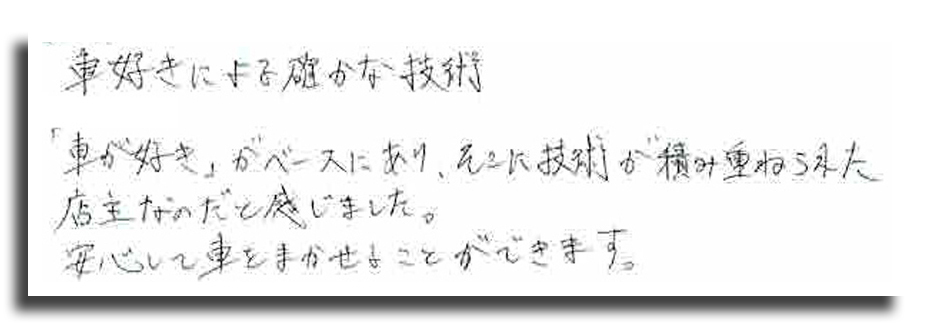 車好きによる確かな技術
「車が好き」がベースにあり、そこに技術が積み重ねられた
店主なのだと感じました。
安心して車をまかせることができます。